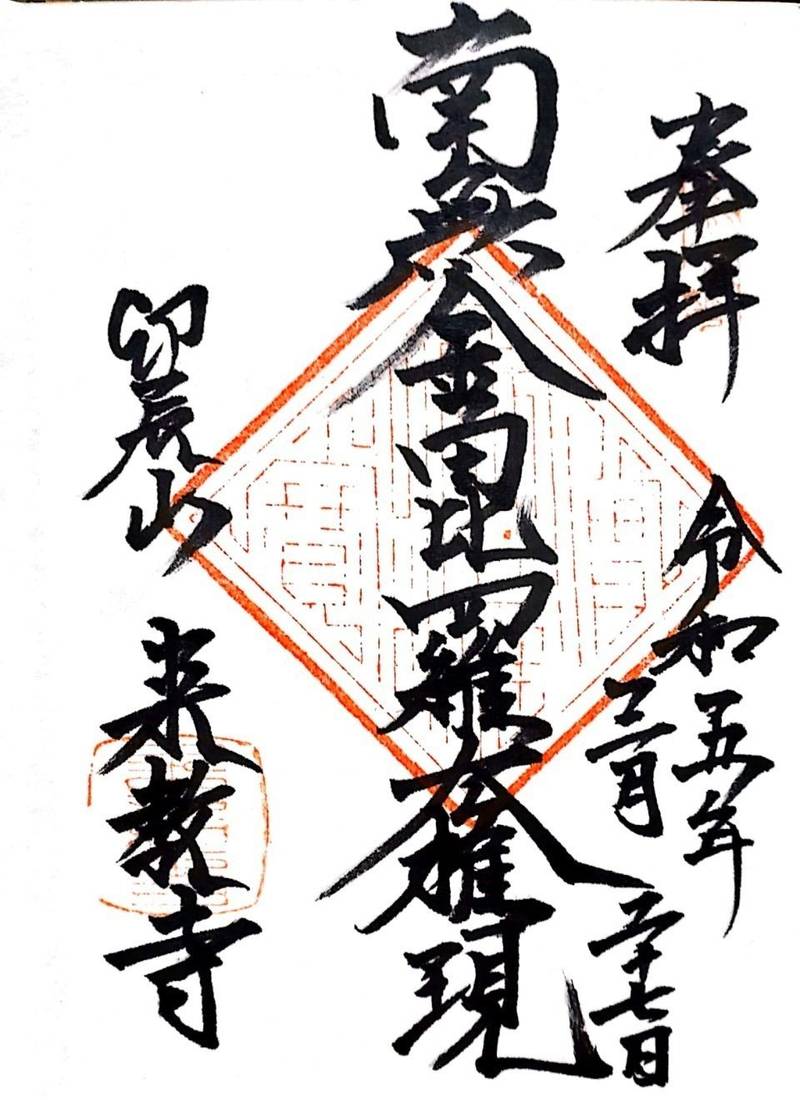 奉拝
令和五年
三月
二十七日
南無金毘羅大権現
卯辰山
来教寺